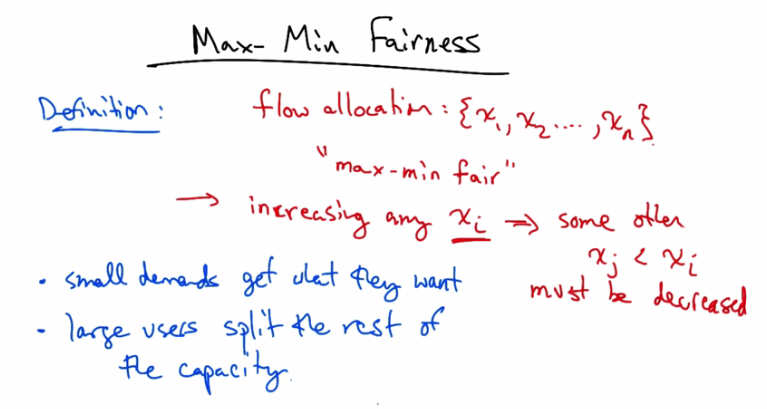 Max-Min Fairness
Definition: flow allocation: {x₁, x₂...., xₙ}
"max-min fair"
→ increasing any xᵢ ⇒ some other
xⱼ < xᵢ
must be decreased
• small demands get what they want
• large users split the rest of
the capacity.